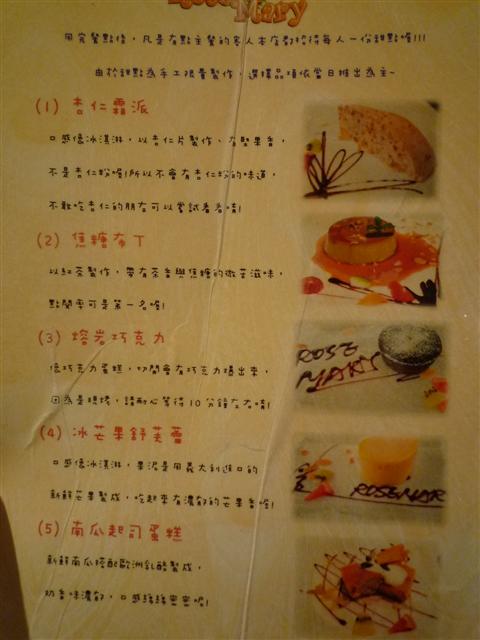 Rose Mary
用完餐點後，凡是有點主餐的客人本店都招待每人一份甜點喔!!!
由於甜點為手工限量製作，選擇品項依當日推出為主~
(1) 杏仁霜派
口感像冰淇淋，以杏仁片製作、有堅果香，
不是杏仁粉喔!所以不會有杏仁粉的味道，
不敢吃杏仁的朋友可以嘗試看看唷!
(2) 焦糖布丁
以紅茶製作，帶有茶香與焦糖的微苦滋味，
點閱率可是第一名喔!
(3) 熔岩巧克力
像巧克力蛋糕，切開會有巧克力漿出來，
因為是現烤，請耐心等待10分鐘左右唷!
ROSE
MARY
(4) 冰芒果舒芙蕾
口感像冰淇淋，果泥是用義大利進口的
新鮮芒果製成，吃起來有濃郁的芒果香喔!
ROSEMAR
(5) 南瓜起司蛋糕
新鮮南瓜搭配歐洲乳酪製成，
奶香味濃郁，口感綿綿密密呢!